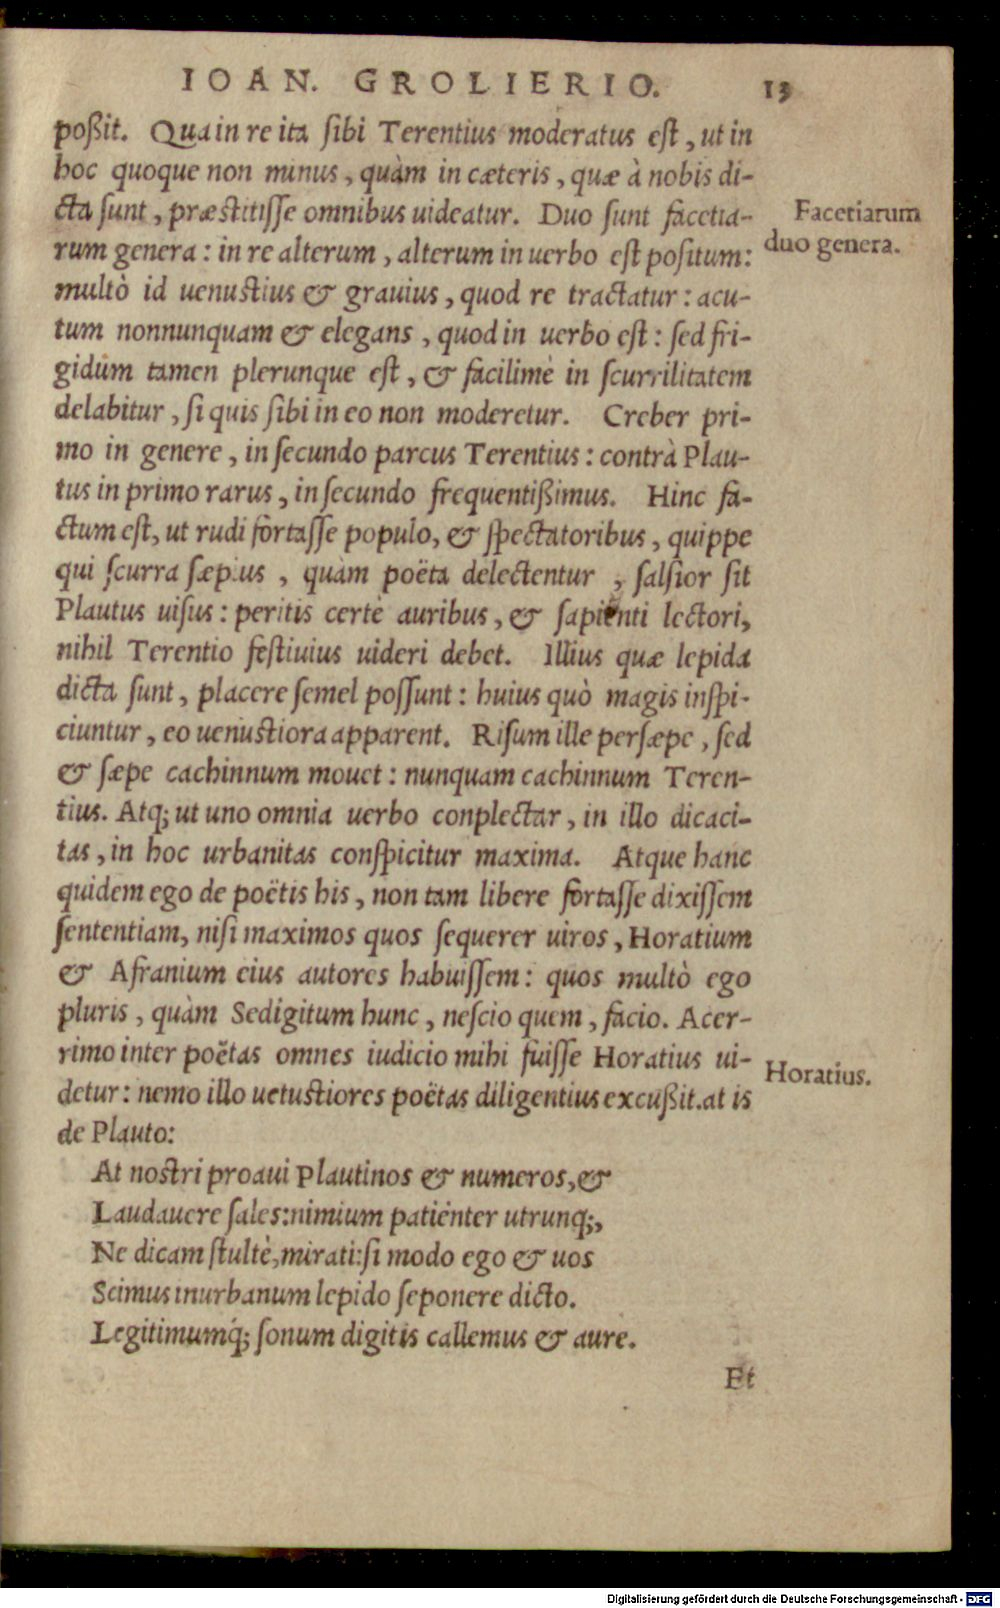 IOAN. GROLIERIO. 13
poßit. Qua in re ita ſibi Terentius moderatus eſt, ut in
hoc quoque non minus, quàm in cæteris, quæ à nobis di-
cta ſunt, præſtitiſſe omnibus uideatur. Duo ſunt facetia-
Facetiarum
duo genera.
rum genera: in re alterum, alterum in uerbo eſt poſitum:
multò id uenuſtius & grauius, quod re tractatur: acu-
tum nonnunquam & elegans, quod in uerbo eſt: ſed fri-
gidum tamen plerunque eſt, & facilimè in ſcurrilitatem
delabitur, ſi quis ſibi in eo non moderetur. Creber pri-
mo in genere, in ſecundo parcus Terentius: contrà Plau-
tus in primo rarus, in ſecundo frequentißimus. Hinc fa-
ctum eſt, ut rudi fortaſſe populo, & ſpectatoribus, quippe
qui ſcurra ſæpius, quàm poëta delectentur, ſalſior ſit
Plautus uiſus: peritis certè auribus, & ſapienti lectori,
nihil Terentio feſtiuius uideri debet. Illius quæ lepida
dicta ſunt, placere ſemel poſſunt: huius quò magis inſpi-
ciuntur, eo uenuſtiora apparent. Riſum ille perſæpe, ſed
& ſæpe cachinnum mouet: nunquam cachinnum Teren-
tius. Atq; ut uno omnia uerbo conplectar, in illo dicaci-
tas, in hoc urbanitas conſpicitur maxima. Atque hanc
quidem ego de poëtis his, non tam libere fortaſſe dixiſſem
ſententiam, niſi maximos quos ſequerer uiros, Horatium
& Afranium eius autores habuiſſem: quos multò ego
pluris, quàm Sedigitum hunc, neſcio quem, facio. Acer-
rimo inter poëtas omnes iudicio mihi fuiſſe Horatius ui-
Horatius.
detur: nemo illo uetuſtiores poëtas diligentius excußit. at is
de Plauto:
At noſtri proaui Plautinos & numeros, &
Laudauere ſales: nimium patienter utrunq;,
Ne dicam ſtultè, mirati: ſi modo ego & uos
Scimus inurbanum lepido ſeponere dicto.
Legitimumq́; ſonum digitis callemus & aure.
Et
Digitalisierung gefördert durch die Deutsche Forschungsgemeinschaft - DFG